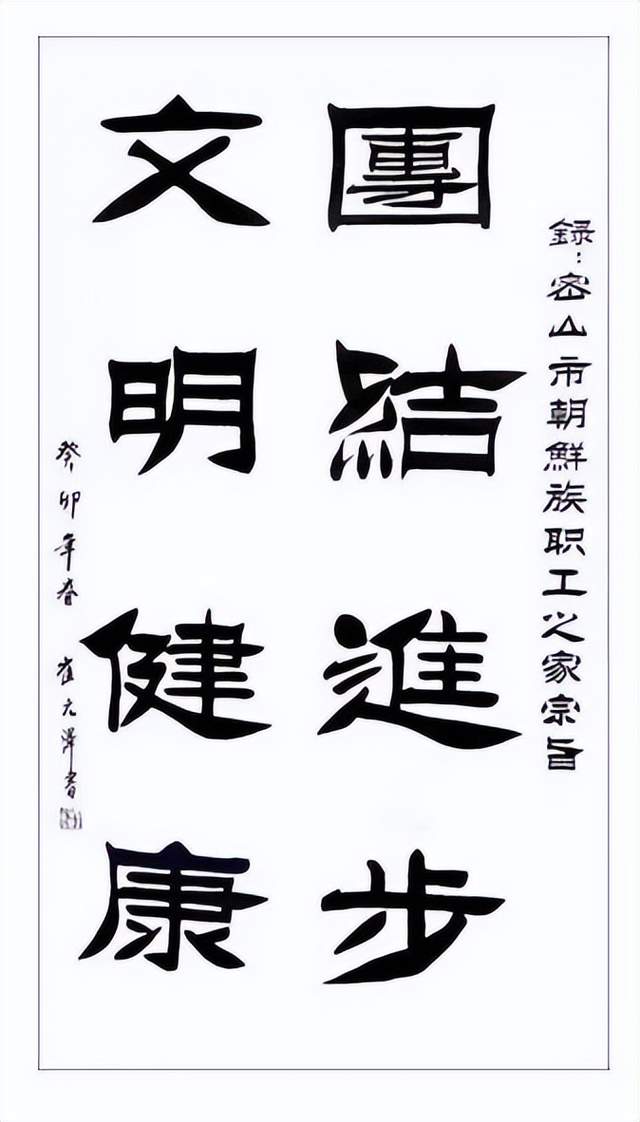 録：密山市朝鮮族职工之家宗旨
團結進步
文明健康
癸卯年春 崔元澤書